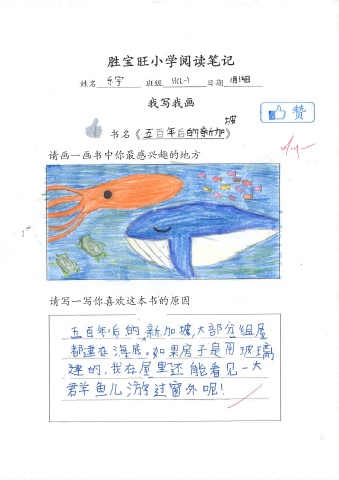 胜宝旺小学阅读笔记
姓名 乐宇 班级 日期
我写我画
书名《五百年后的新加坡》
赞
请画一画书中你最感兴趣的地方
请写一写你喜欢这本书的原因
五百年后的新加坡，大部分组屋
都建在海底。如果房子是用玻璃
建的，我在屋里还能看见一大
群鱼儿游过窗外呢！